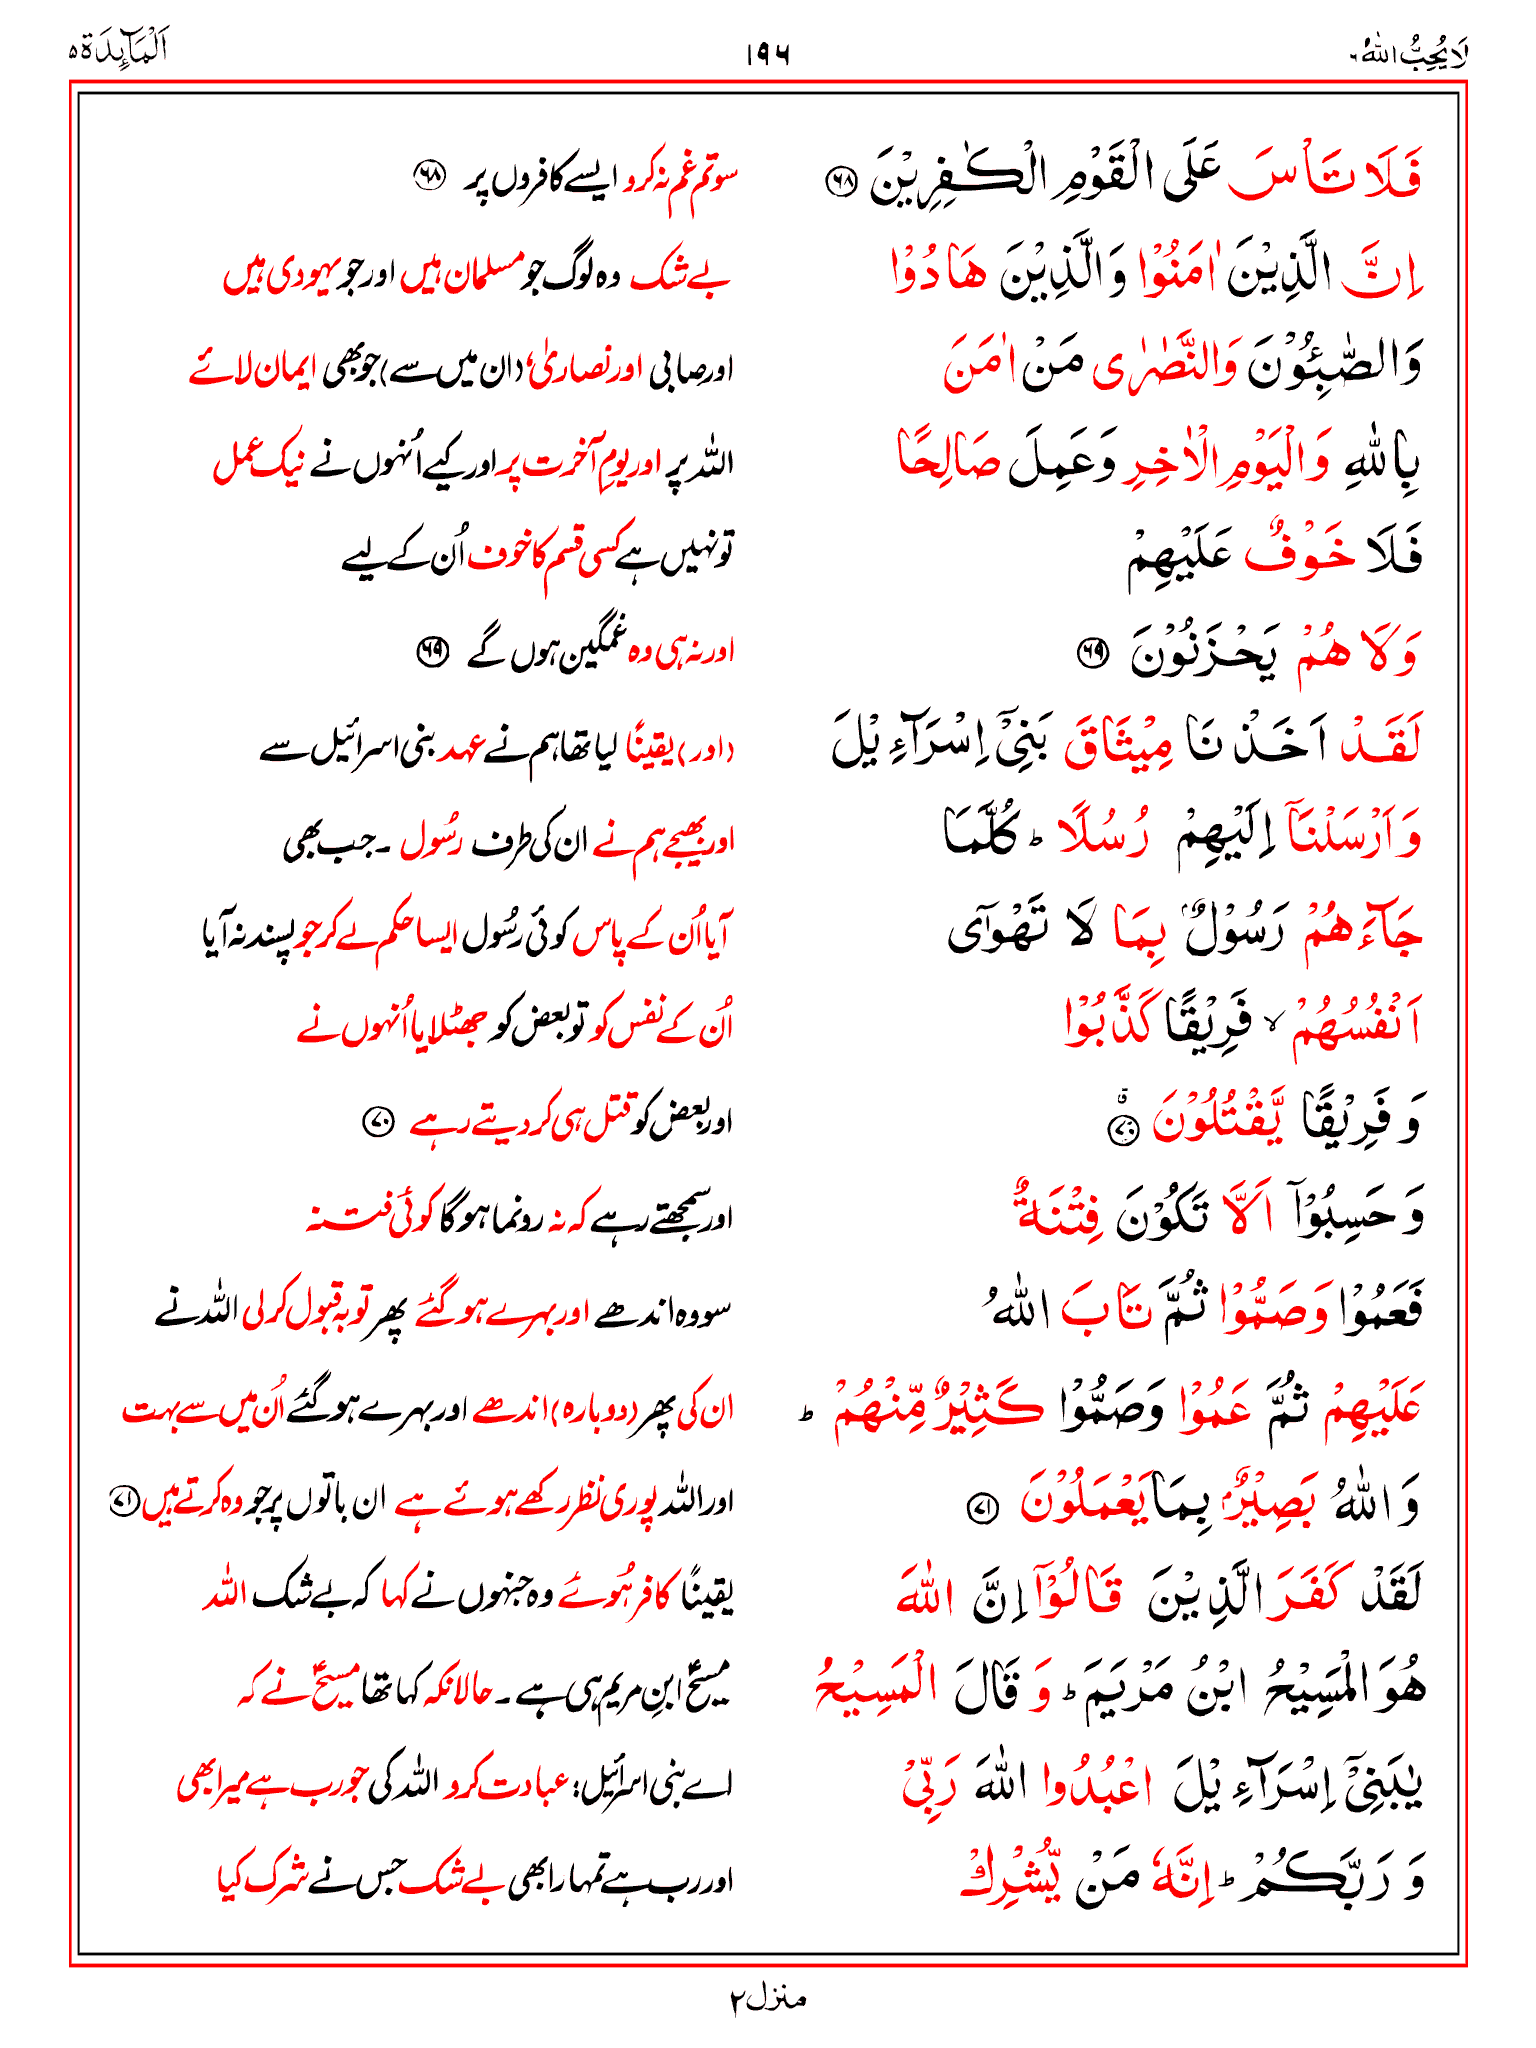 لَا يُحِبُّ اللهُ ٦
١٩٦
اَلْمَآئِدَة ٥
فَلَا تَاْسَ عَلَى الْقَوْمِ الْكٰفِرِيْنَ ﴿٦٨﴾ سو تم غم نہ کرو ایسے کافروں پر ﴿٦٨﴾
اِنَّ الَّذِيْنَ اٰمَنُوْا وَالَّذِيْنَ هَادُوْا بے شک وہ لوگ جو مسلمان ہیں اور جو یہودی ہیں
وَالصّٰبِـُٔوْنَ وَالنَّصٰرٰى مَنْ اٰمَنَ اور صابی اور نصاریٰ، (ان میں سے) جو بھی ایمان لائے
بِاللّٰهِ وَالْيَوْمِ الْاٰخِرِ وَعَمِلَ صَالِحًا اللہ پر اور یومِ آخرت پر اور کیے اُنہوں نے نیک عمل
فَلَا خَوْفٌ عَلَيْهِمْ تو نہیں ہے کسی قسم کا خوف اُن کے لیے
وَلَا هُمْ يَحْزَنُوْنَ ﴿٦٩﴾ اور نہ ہی وہ غمگین ہوں گے ﴿٦٩﴾
لَقَدْ اَخَذْنَا مِيْثَاقَ بَنِيْٓ اِسْرَآءِيْلَ (اور) یقینًا لیا تھا ہم نے عہد بنی اسرائیل سے
وَاَرْسَلْنَآ اِلَيْهِمْ رُسُلًا ؕ كُلَّمَا اور بھیجے ہم نے ان کی طرف رسُول ۔ جب بھی
جَآءَهُمْ رَسُوْلٌۢ بِمَا لَا تَهْوٰٓى آیا اُن کے پاس کوئی رسُول ایسا حکم لے کر جو پسند نہ آیا
اَنْفُسُهُمْ ۙ فَرِيْقًا كَذَّبُوْا اُن کے نفس کو تو بعض کو جھٹلایا اُنہوں نے
وَفَرِيْقًا يَّقْتُلُوْنَ ﴿٧٠﴾ اور بعض کو قتل ہی کر دیتے رہے ﴿٧٠﴾
وَحَسِبُوْٓا اَلَّا تَكُوْنَ فِتْنَةٌ اور سمجھتے رہے کہ نہ رونما ہوگا کوئی فتنہ
فَعَمُوْا وَصَمُّوْا ثُمَّ تَابَ اللّٰهُ سو وہ اندھے اور بہرے ہو گئے پھر توبہ قبول کرلی اللہ نے
عَلَيْهِمْ ثُمَّ عَمُوْا وَصَمُّوْا كَثِيْرٌ مِّنْهُمْ ؕ ان کی پھر (دوبارہ) اندھے اور بہرے ہو گئے اُن میں سے بہت
وَاللّٰهُ بَصِيْرٌۢ بِمَا يَعْمَلُوْنَ ﴿٧١﴾ اور اللہ پوری نظر رکھے ہوئے ہے ان باتوں پر جو وہ کرتے ہیں ﴿٧١﴾
لَقَدْ كَفَرَ الَّذِيْنَ قَالُوْٓا اِنَّ اللّٰهَ یقینًا کافر ہُوئے وہ جنہوں نے کہا کہ بے شک اللہ
هُوَ الْمَسِيْحُ ابْنُ مَرْيَمَ ؕ وَقَالَ الْمَسِيْحُ مسیحؑ ابنِ مریم ہی ہے ۔ حالانکہ کہا تھا مسیحؑ نے کہ
يٰبَنِيْٓ اِسْرَآءِيْلَ اعْبُدُوا اللّٰهَ رَبِّيْ اے بنی اسرائیل: عبادت کرو اللہ کی جو رب ہے میرا بھی
وَرَبَّكُمْ ؕ اِنَّهٗ مَنْ يُّشْرِكْ اور رب ہے تمہارا بھی بے شک جس نے شرک کیا
منزل ٢